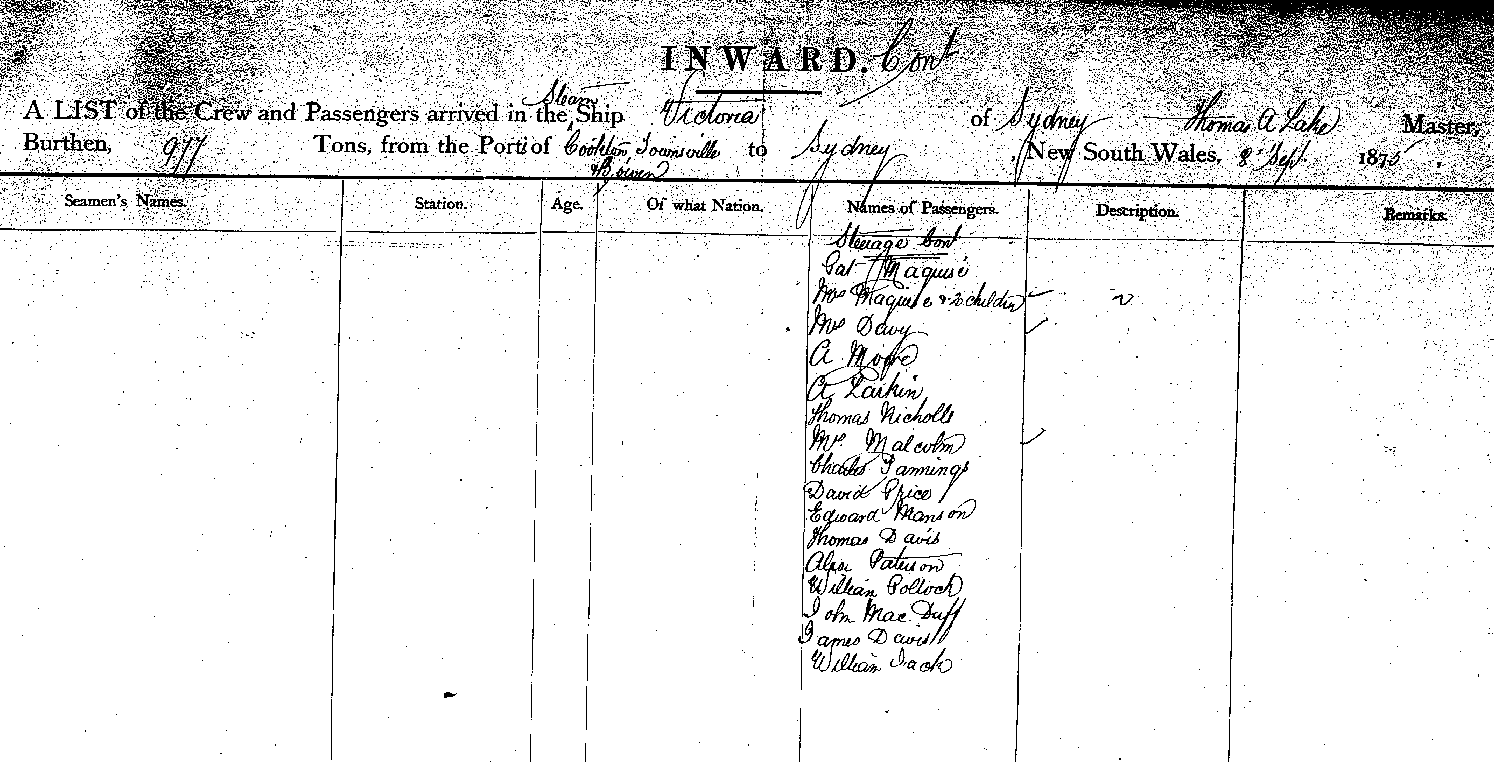 INWARD. Cont
A LIST of the Crew and Passengers arrived in the Steam Ship Victoria of Sydney Thomas A Lake Master,
Burthen, 977 Tons, from the Port of Cooktown, Townsville & Bowen to Sydney, New South Wales, 8th Sept. 1875.
Seamen's Names. Station. Age. Of what Nation. Names of Passengers. Description. Remarks.
Steerage Cont
Pat Maguire
Mrs Maguire & 2 children
Mrs Davy
A Moore
A Larkin
Thomas Nicholls
Mr. Malcolm
Charles Tannings
David Price
Edward Manson
Thomas Davis
Alexr Paterson
William Pollock
John Mac Duff
James Davis
William Jack